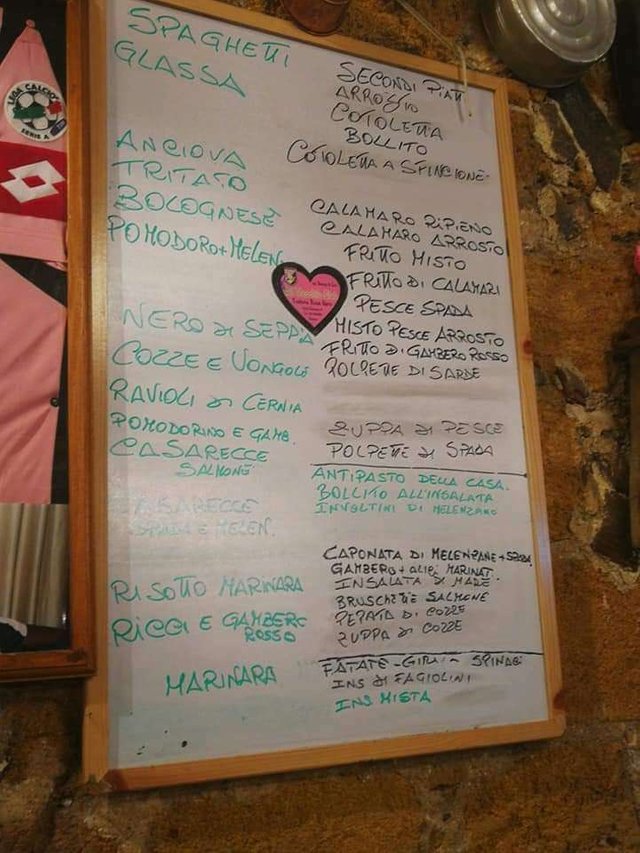 SPAGHETTI
GLASSA
ANCIOVA
TRITATO
BOLOGNESE
POMODORO+MELEN
NERO DI SEPPIA
COZZE E VONGOLE
RAVIOLI DI CERNIA
POMODORINO E GAMB.
CASARECCE
SALMONE
CASARECCE
SPADA E MELEN.
RISOTTO MARINARA
RICCI E GAMBERO
ROSSO
MARINARA
SECONDI PIATTI
ARROSTO
COTOLETTA
BOLLITO
COTOLETTA A SFINCIONE
CALAMARO RIPIENO
CALAMARO ARROSTO
FRITTO MISTO
FRITTO DI CALAMARI
PESCE SPADA
MISTO PESCE ARROSTO
FRITTO DI GAMBERO ROSSO
POLPETTE DI SARDE
ZUPPA DI PESCE
POLPETTE DI SPADA
ANTIPASTO DELLA CASA.
BOLLITO ALL'INSALATA
INVOLTINI DI MELENZANO
CAPONATA DI MELENZANE + SPADA
GAMBERO + ALICI MARINAT.
INSALATA DI MARE
BRUSCHETTE SALMONE
PEPATA DI COZZE
ZUPPA DI COZZE
PATATE - GIRI - SPINACI
INS DI FAGIOLINI
INS MISTA
LEGA CALCIO
SERIE A